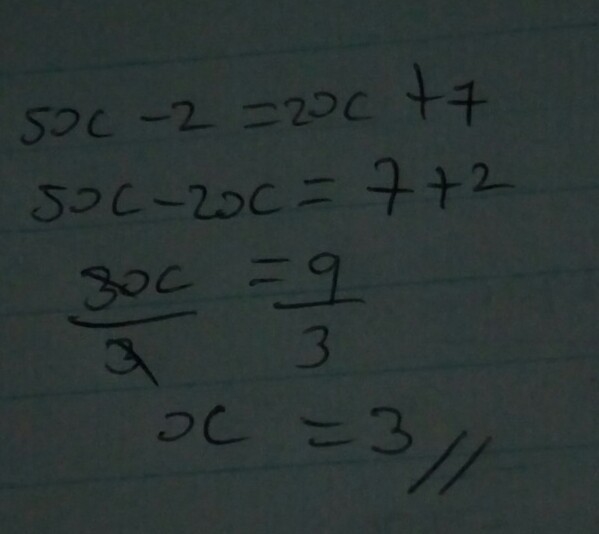 5x - 2 = 2x + 7
5x - 2x = 7 + 2
3x = 9
3 3
x = 3 //